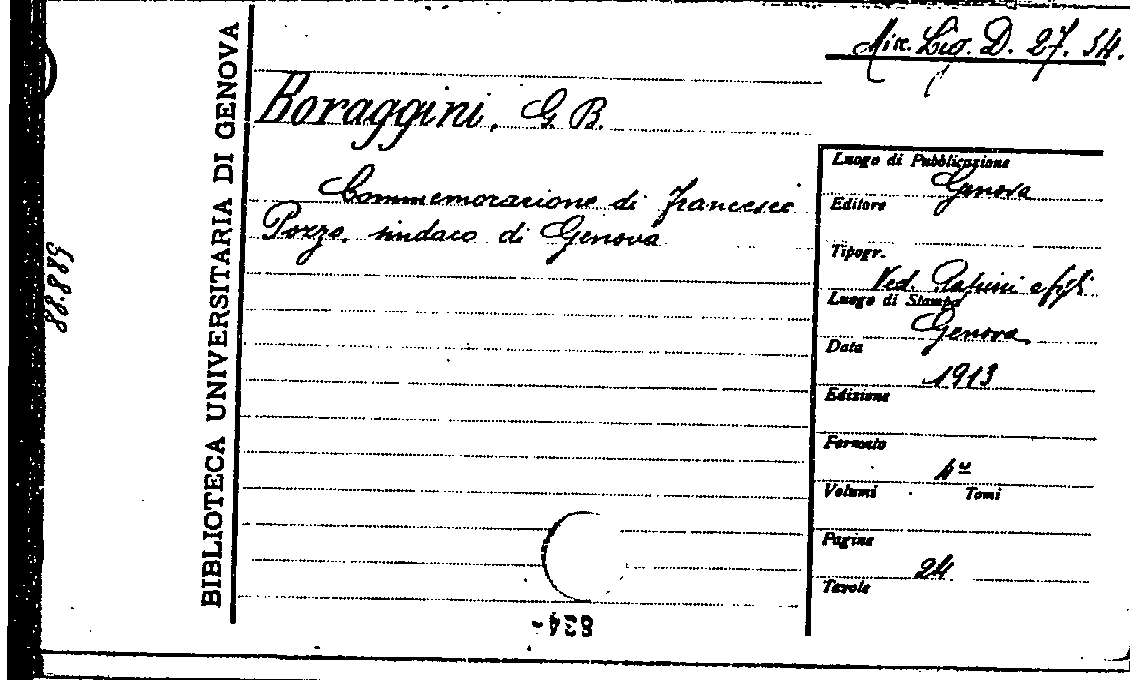 Misc. Lig. D. 27. 54.
BIBLIOTECA UNIVERSITARIA DI GENOVA
58888
Boraggini, G. B.
Commemorazione di Francesco
Pozzo, sindaco di Genova
Luogo di Pubblicazione
Genova
Editore
Tipogr.
Ved. Papini e figli
Luogo di Stampa
Genova
Data
1913
Edizione
Formato
4º
Volumi Tomi
Pagine
24
Tavole
824-